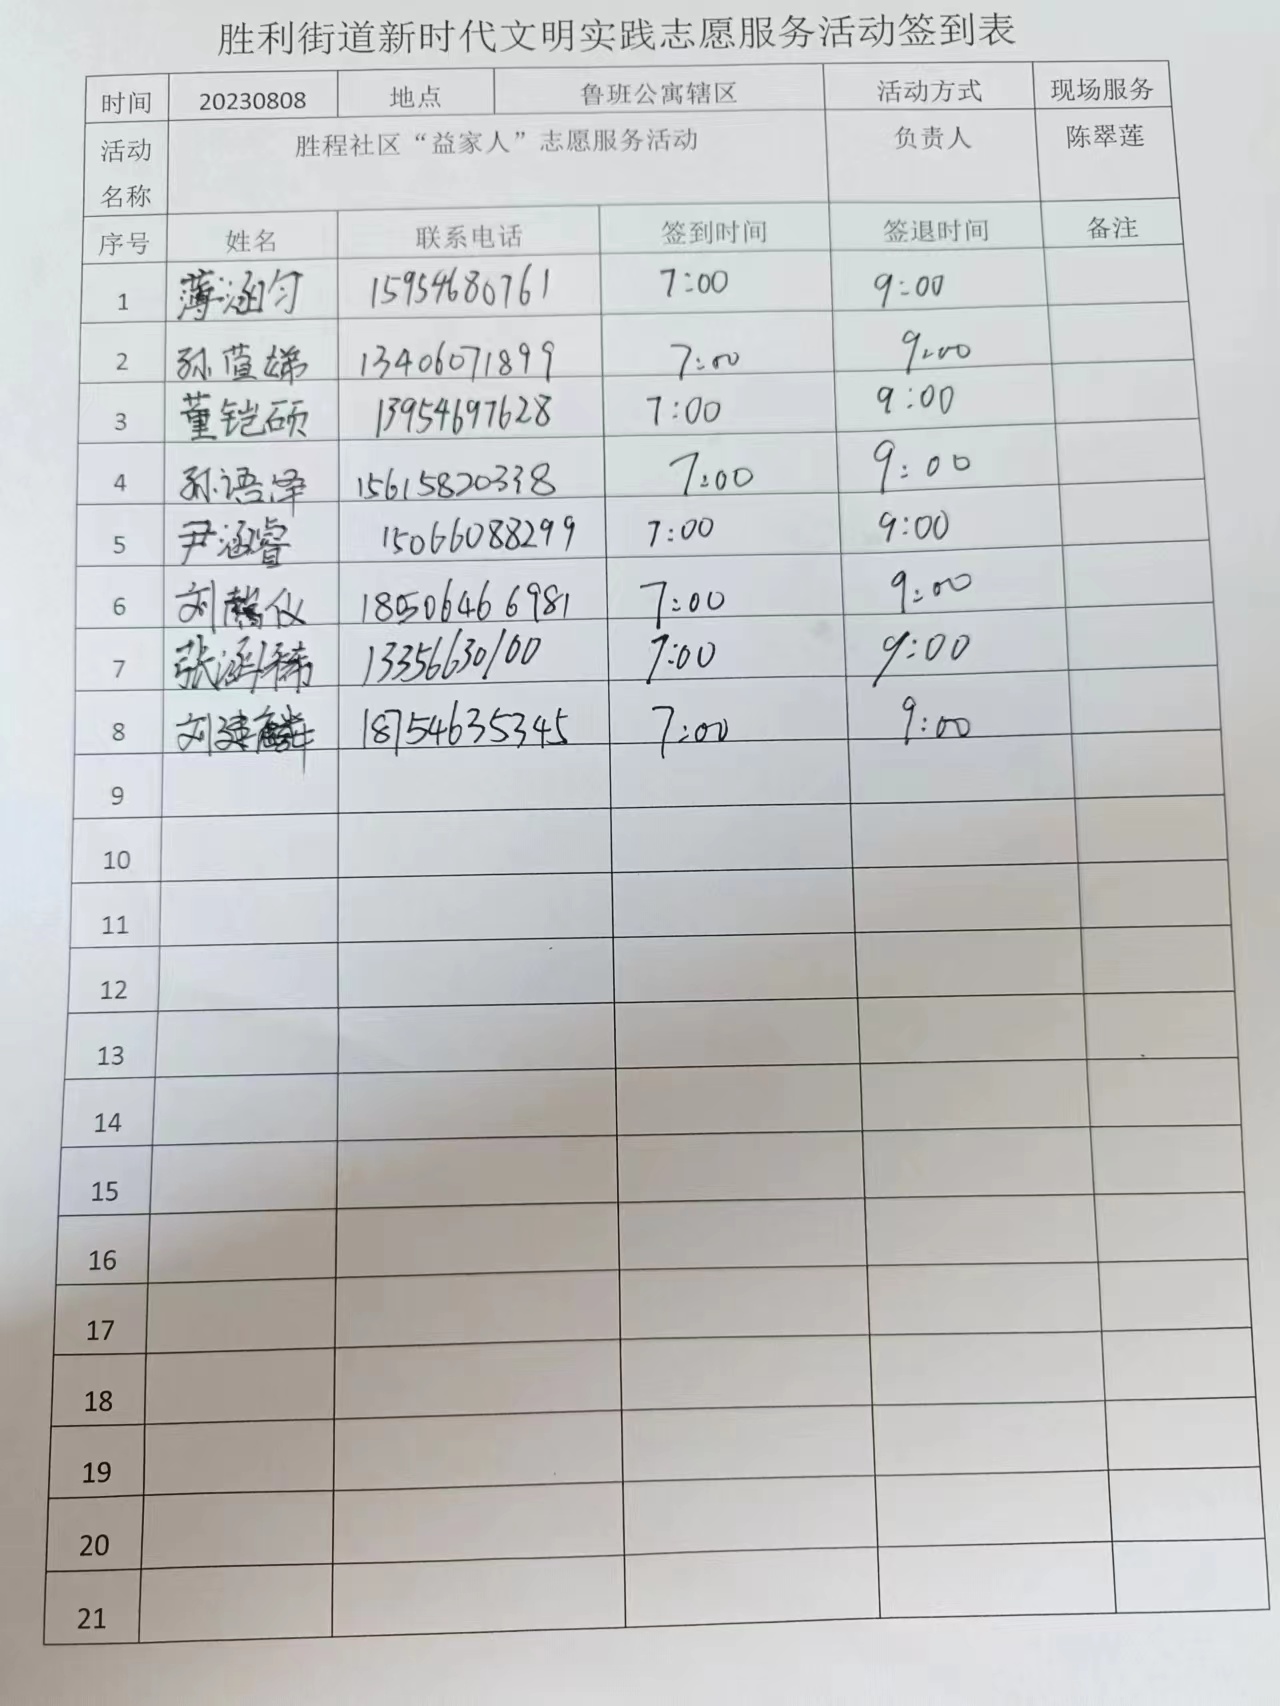 胜利街道新时代文明实践志愿服务活动签到表
时间 20230808 地点 鲁班公寓辖区 活动方式 现场服务
活动名称 胜程社区“益家人”志愿服务活动 负责人 陈翠莲
序号 姓名 联系电话 签到时间 签退时间 备注
1 薄涵匀 15954680761 7:00 9:00
2 孙萱娣 13406071899 7:00 9:00
3 董铠硕 13954697628 7:00 9:00
4 孙语泽 15615820338 7:00 9:00
5 尹涵睿 15066088299 7:00 9:00
6 刘 仪 180506466981 7:00 9:00
7 张涵 13356630100 7:00 9:00
8 刘建麟 18754635345 7:00 9:00
9
10
11
12
13
14
15
16
17
18
19
20
21